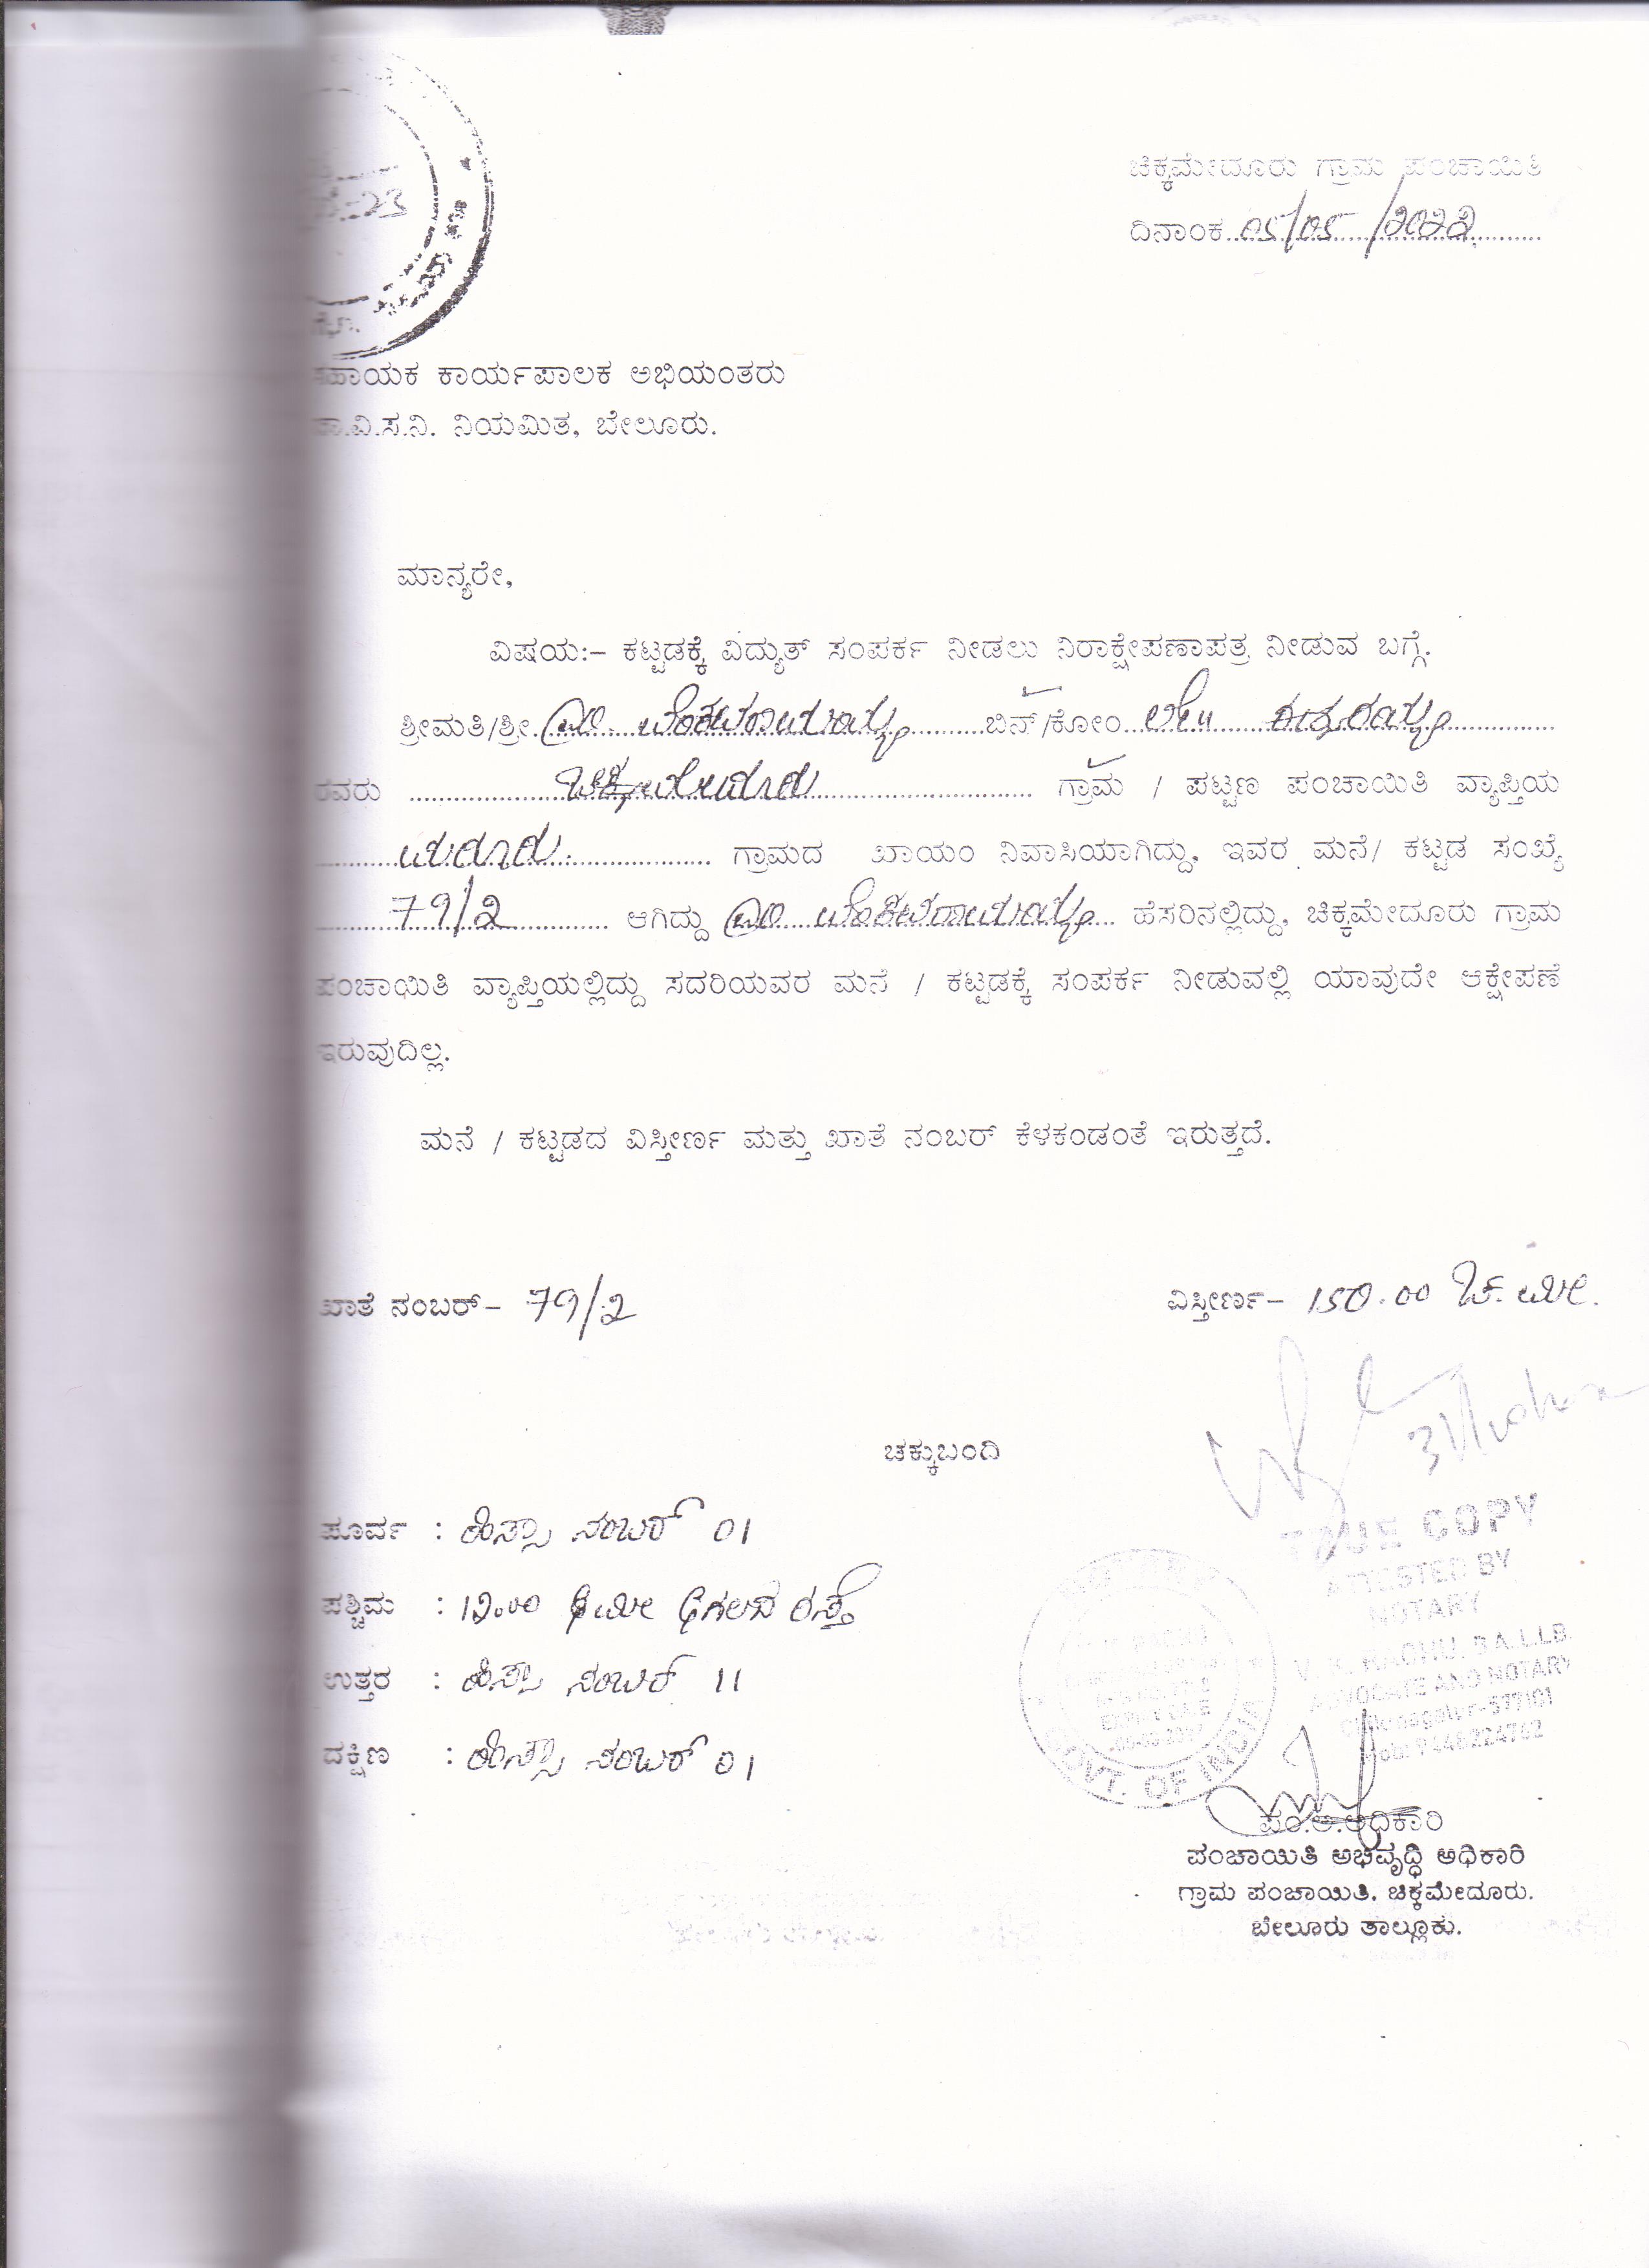 ಚಿಕ್ಕಮೇದೂರು ಗ್ರಾಮ ಪಂಚಾಯಿತಿ
ದಿನಾಂಕ 05/05/2022
ಸಹಾಯಕ ಕಾರ್ಯಪಾಲಕ ಅಭಿಯಂತರು
ವಿ.ಸ.ನಿ. ನಿಯಮಿತ, ಬೇಲೂರು.
ಮಾನ್ಯರೇ,
ವಿಷಯ:– ಕಟ್ಟಡಕ್ಕೆ ವಿದ್ಯುತ್ ಸಂಪರ್ಕ ನೀಡಲು ನಿರಾಕ್ಷೇಪಣಾಪತ್ರ ನೀಡುವ ಬಗ್ಗೆ.
ಶ್ರೀಮತಿ/ಶ್ರೀ ಬಿನ್/ಕೋಂ ಲೇ॥
ರವರು ಚಿಕ್ಕಮೇದೂರು ಗ್ರಾಮ / ಪಟ್ಟಣ ಪಂಚಾಯಿತಿ ವ್ಯಾಪ್ತಿಯ
ಗ್ರಾಮದ ಖಾಯಂ ನಿವಾಸಿಯಾಗಿದ್ದು, ಇವರ ಮನೆ/ ಕಟ್ಟಡ ಸಂಖ್ಯೆ
79/2 ಆಗಿದ್ದು ಹೆಸರಿನಲ್ಲಿದ್ದು, ಚಿಕ್ಕಮೇದೂರು ಗ್ರಾಮ
ಪಂಚಾಯಿತಿ ವ್ಯಾಪ್ತಿಯಲ್ಲಿದ್ದು ಸದರಿಯವರ ಮನೆ / ಕಟ್ಟಡಕ್ಕೆ ಸಂಪರ್ಕ ನೀಡುವಲ್ಲಿ ಯಾವುದೇ ಆಕ್ಷೇಪಣೆ
ಇರುವುದಿಲ್ಲ.
ಮನೆ / ಕಟ್ಟಡದ ವಿಸ್ತೀರ್ಣ ಮತ್ತು ಖಾತೆ ನಂಬರ್ ಕೆಳಕಂಡಂತೆ ಇರುತ್ತದೆ.
ಖಾತೆ ನಂಬರ್– 79/2 ವಿಸ್ತೀರ್ಣ– 150.00 ಚ.ಮೀ.
ಚಕ್ಕುಬಂದಿ
ಪೂರ್ವ : ಹಿಸ್ಸಾ ನಂಬರ್ 01
ಪಶ್ಚಿಮ : 12.00 ಮೀ ಅಗಲದ ರಸ್ತೆ
ಉತ್ತರ : ಹಿಸ್ಸಾ ನಂಬರ್ 11
ದಕ್ಷಿಣ : ಹಿಸ್ಸಾ ನಂಬರ್ 01
TRUE COPY
ATTESTED BY
NOTARY
RAGHU, B.A.LLB.
ADVOCATE AND NOTARY
GOVT. OF INDIA
ಪಂ.ಅ.ಅಧಿಕಾರಿ
ಪಂಚಾಯಿತಿ ಅಭಿವೃದ್ಧಿ ಅಧಿಕಾರಿ
ಗ್ರಾಮ ಪಂಚಾಯಿತಿ. ಚಿಕ್ಕಮೇದೂರು.
ಬೇಲೂರು ತಾಲ್ಲೂಕು.